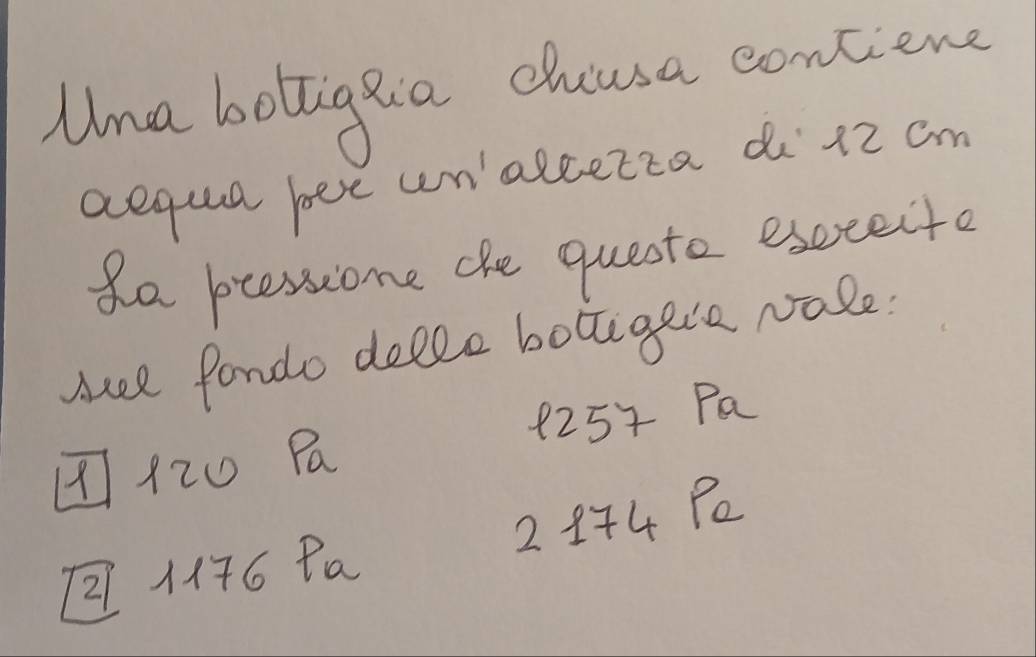 Una bottiglia chiusa contiene
acqua per un'altezza di 12 cm
La pressione che questa esercita
sul fondo della bottiglia vale:
1 120 Pa 1257 Pa
2 1176 Pa 2174 Pa